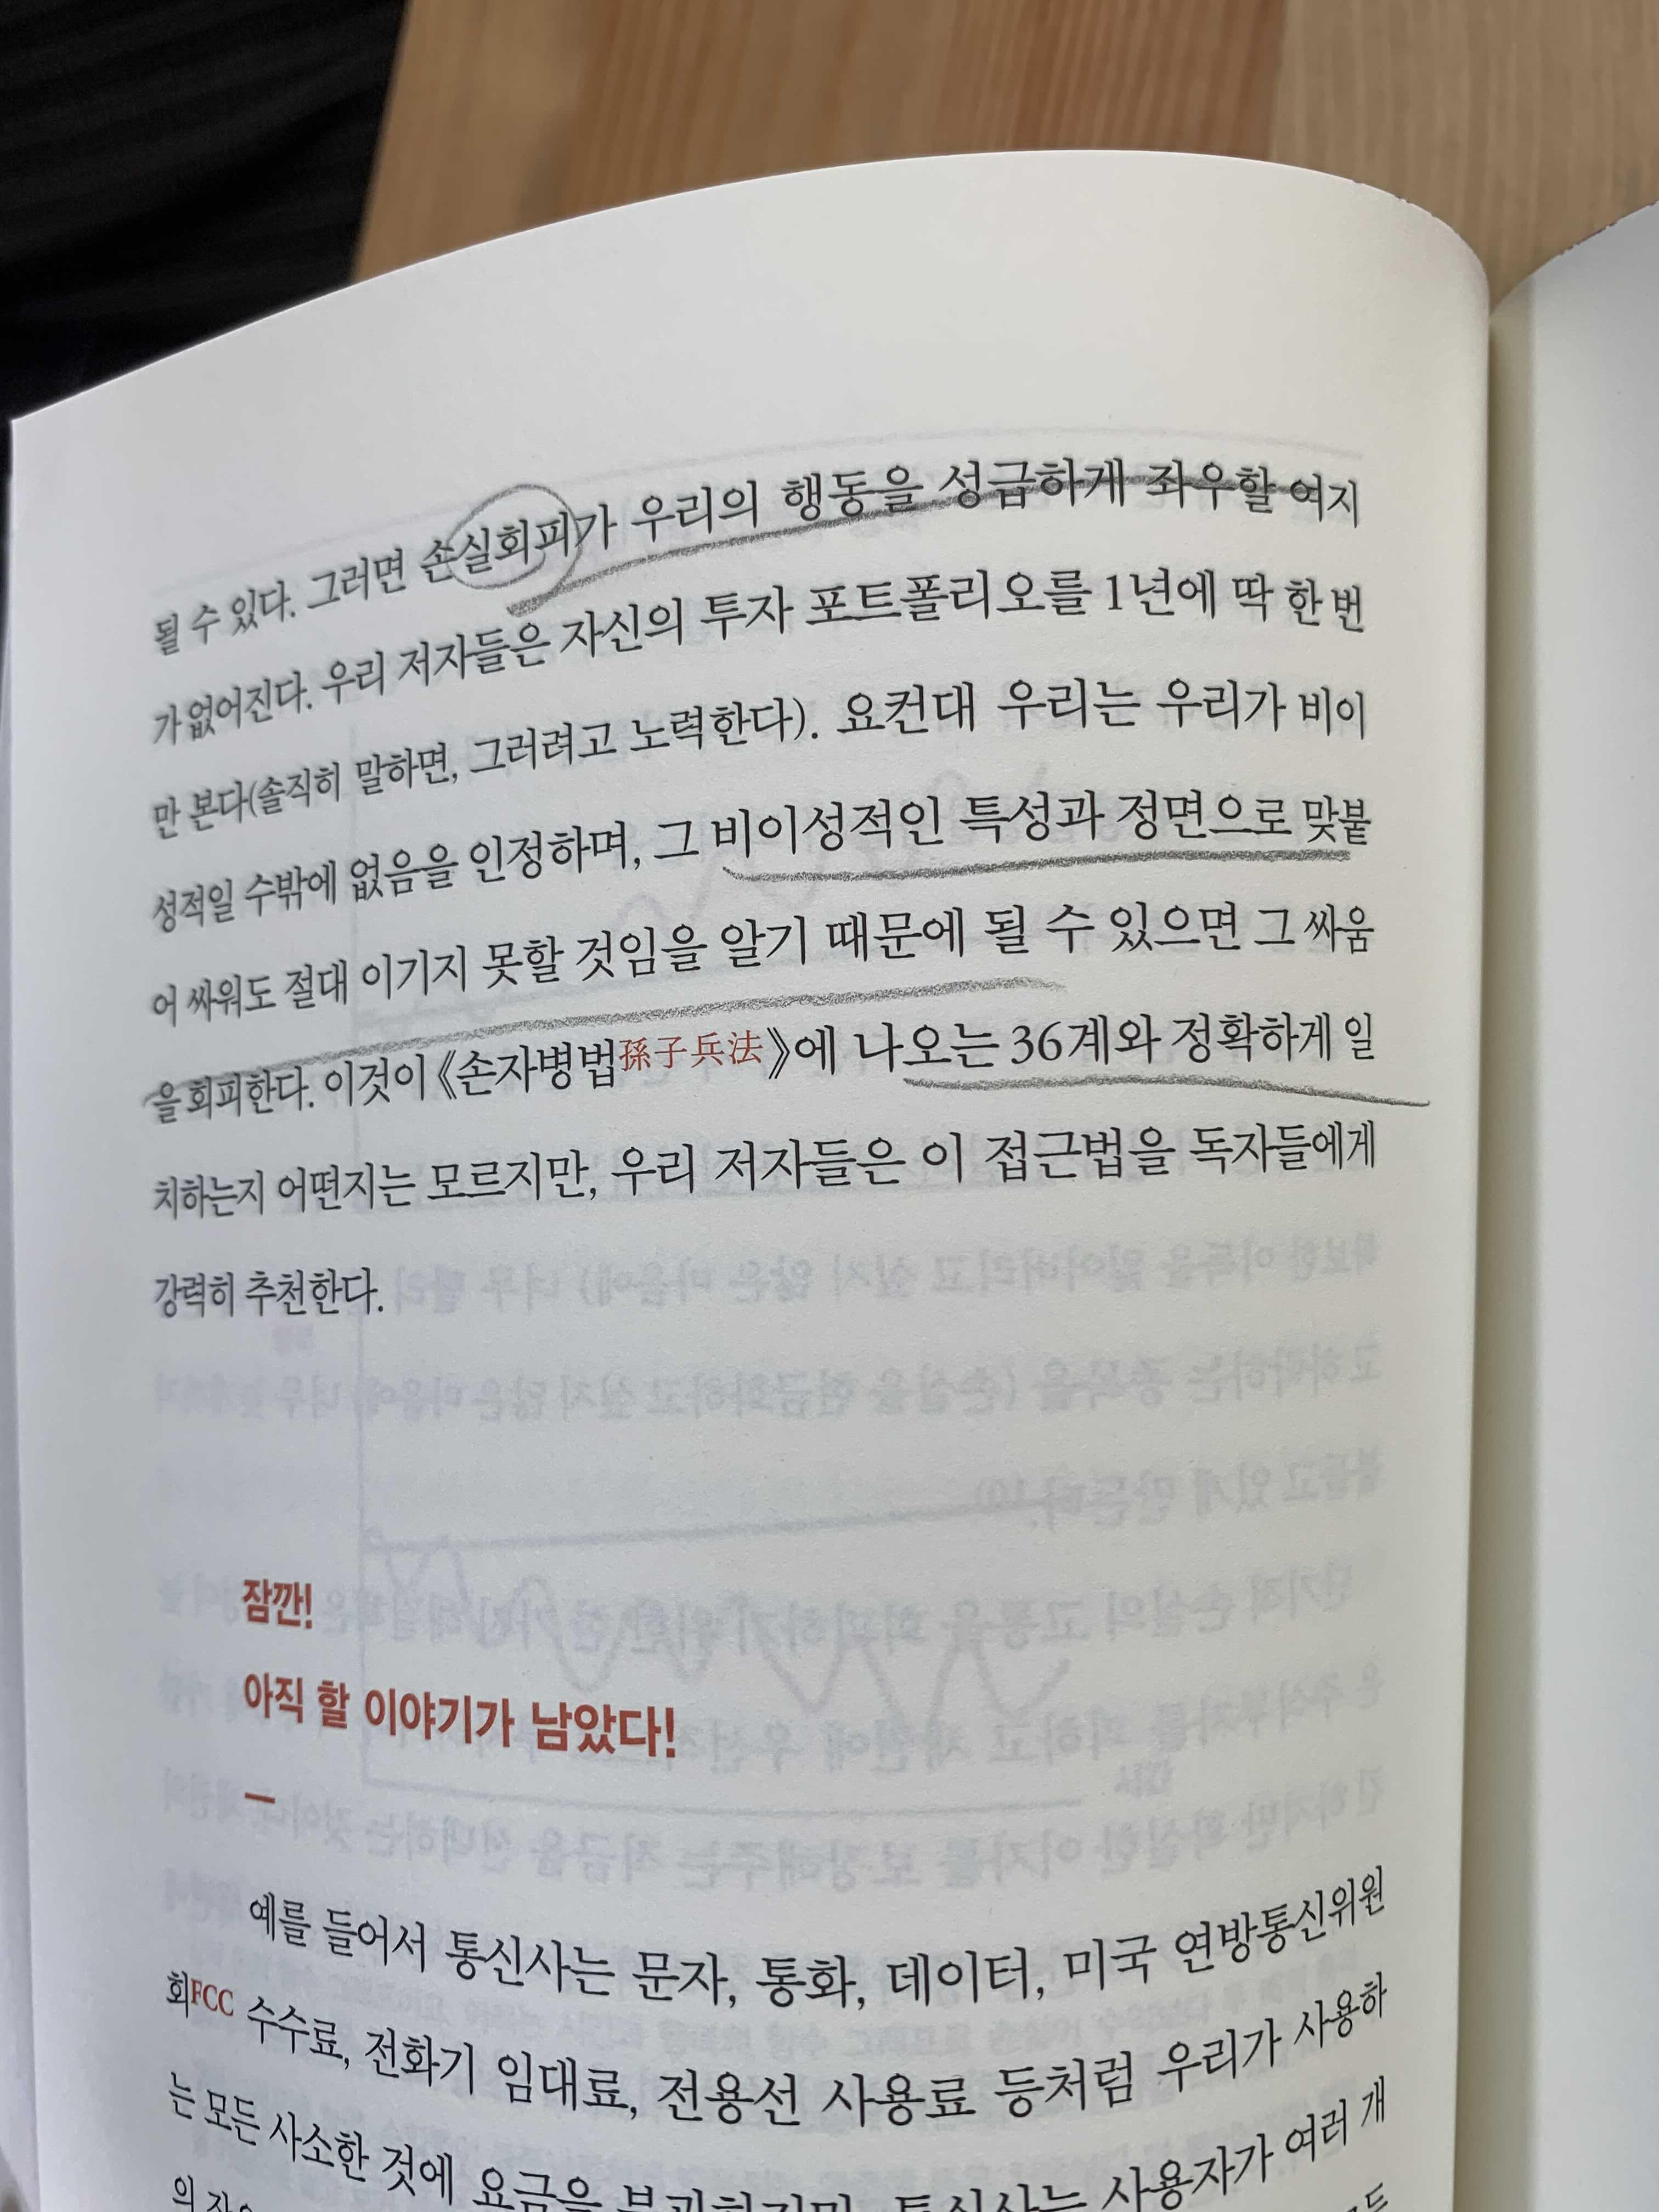 될 수 있다. 그러면 손실회피가 우리의 행동을 성급하게 좌우할 여지
가 없어진다. 우리 저자들은 자신의 투자 포트폴리오를 1년에 딱 한 번
만 본다(솔직히 말하면, 그러려고 노력한다). 요컨대 우리는 우리가 비이
성적일 수밖에 없음을 인정하며, 그 비이성적인 특성과 정면으로 맞붙
어 싸워도 절대 이기지 못할 것임을 알기 때문에 될 수 있으면 그 싸움
을 회피한다. 이것이 《손자병법孫子兵法》에 나오는 36계와 정확하게 일
치하는지 어떤지는 모르지만, 우리 저자들은 이 접근법을 독자들에게
강력히 추천한다.
잠깐!
아직 할 이야기가 남았다!
예를 들어서 통신사는 문자, 통화, 데이터, 미국 연방통신위원
회FCC 수수료, 전화기 임대료, 전용선 사용료 등처럼 우리가 사용하
는 모든 사소한 것에 요금을 부과하지만, 통신사는 사용자가 여러 개
의